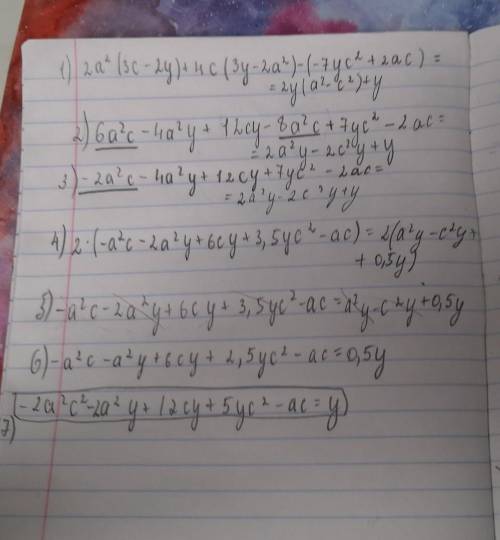 1) 2a² (3c - 2y) + 4c (3y - 2a²) - (-7yc² + 2ac) =
= 2y(a² - c²) + y
2) 6a²c - 4a²y + 12cy - 8a²c + 7yc² - 2ac =
= 2a²y - 2c²y + y
3) -2a²c - 4a²y + 12cy + 7yc² - 2ac =
= 2a²y - 2c²y + y
4) 2·(-a²c - 2a²y + 6cy + 3,5yc² - ac) = 2(a²y - c²y +
+ 0,5y)
5) -a²c - 2a²y + 6cy + 3,5yc² - ac = a²y - c²y + 0,5y
6) -a²c - a²y + 6cy + 2,5yc² - ac = 0,5y
7) -2a²c² - 2a²y + 12cy + 5yc² - ac = y